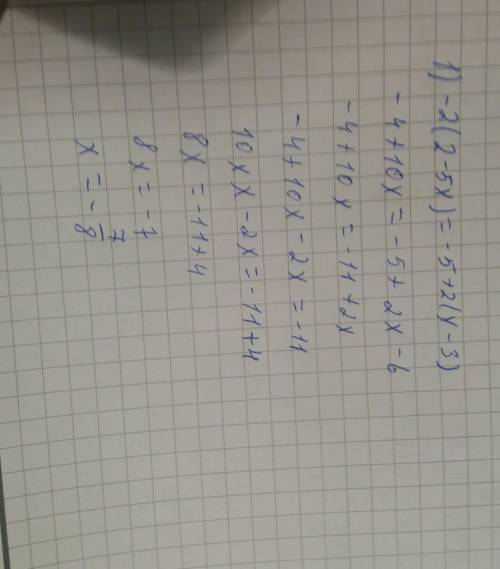 1) -2(2-5x)=-5+2(x-3)
-4+10x=-5+2x-6
-4+10x=-11+2x
-4+10x-2x=-11
10xx-2x=-11+4
8x=-11+4
8x=-7
x=-7/8